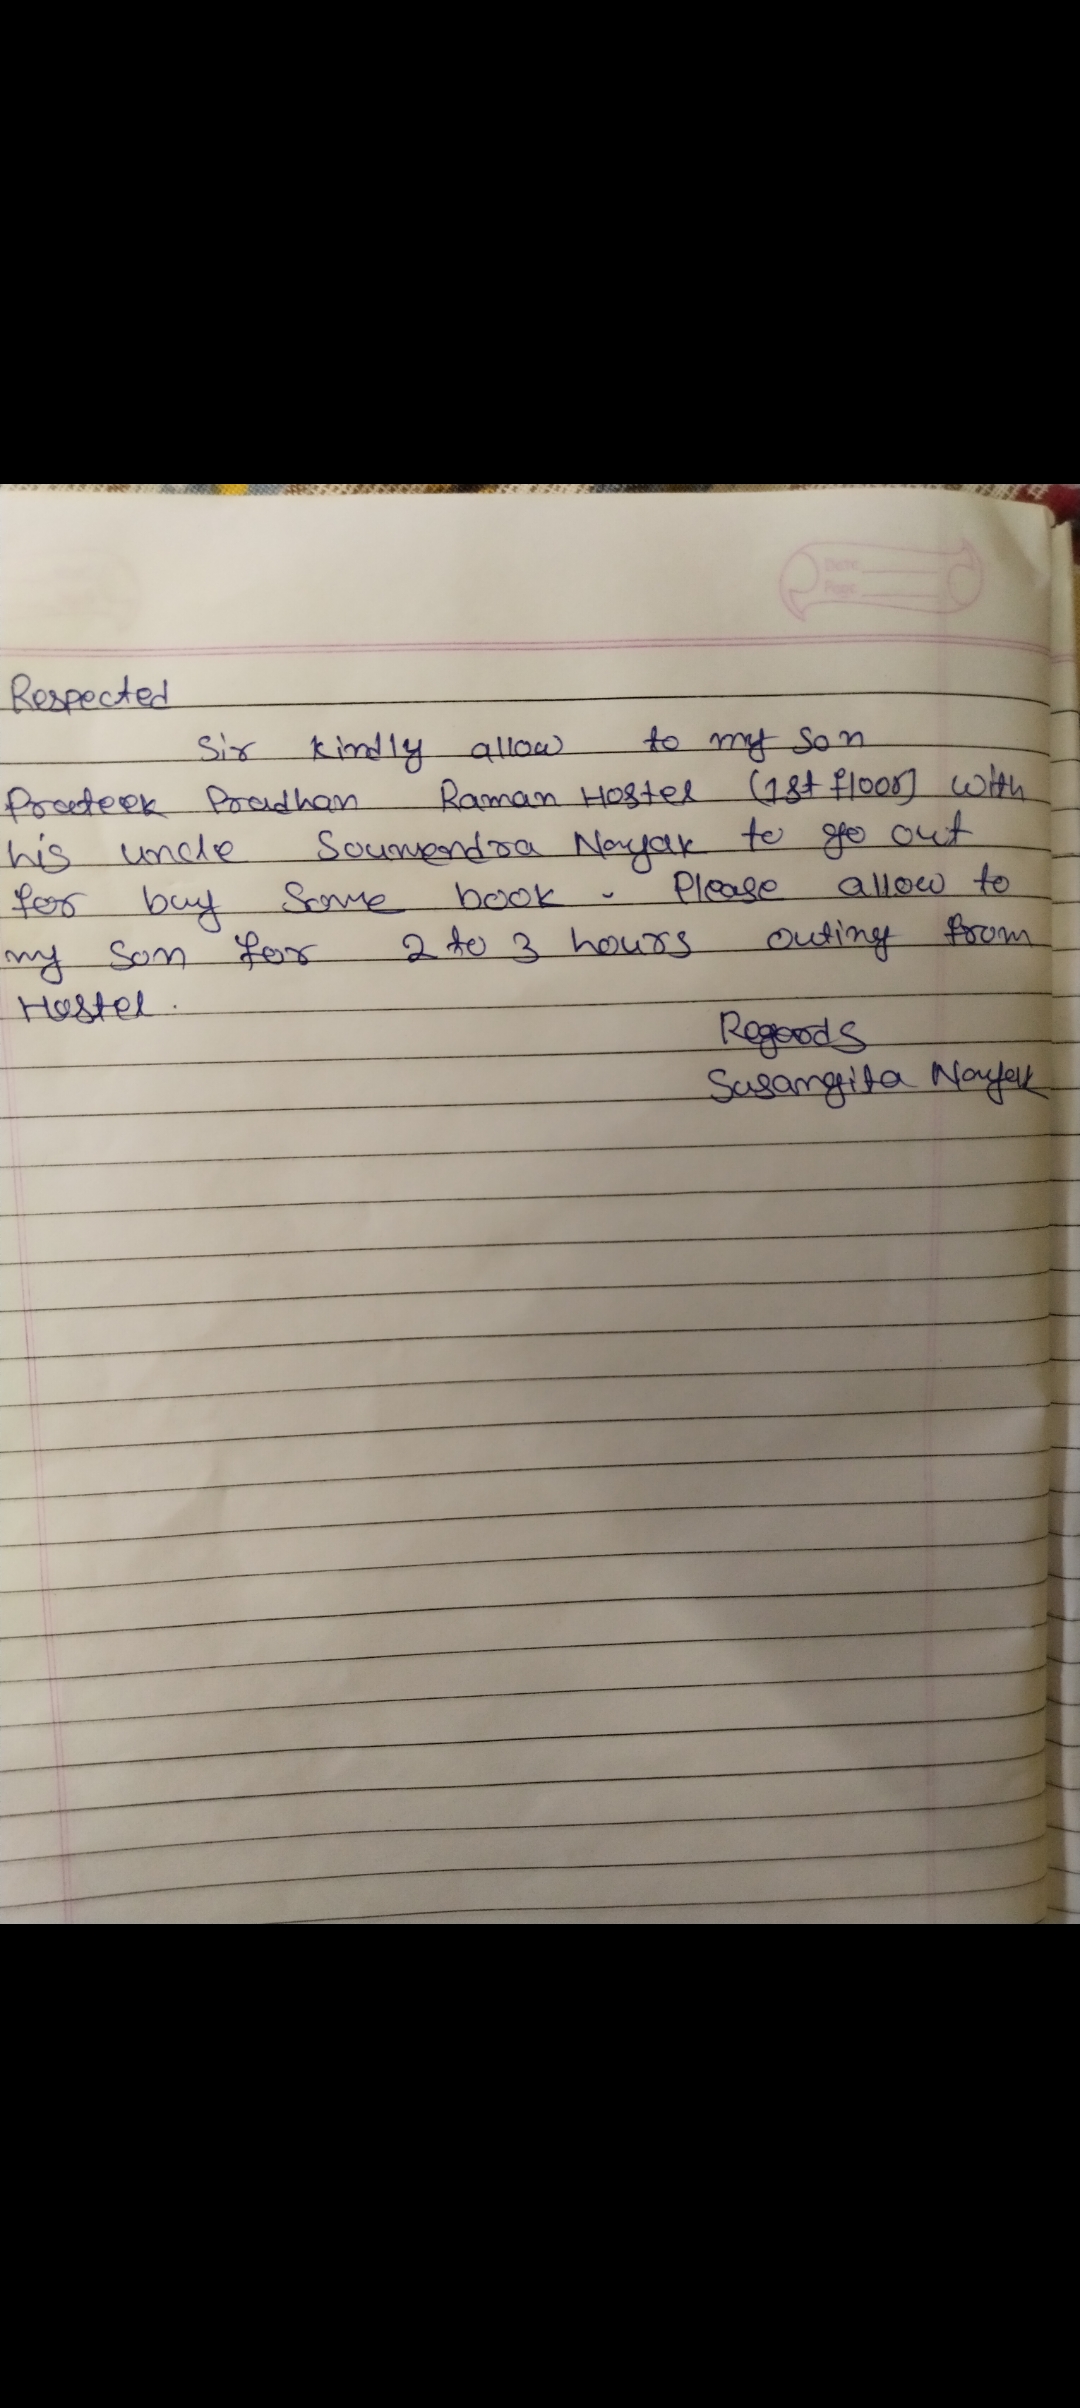 Date
Page
Respected
Sir kindly allow to my son
Prateek Pradhan Raman Hostel (1st floor) with
his uncle Soumendra Nayak to go out
for buy some book. Please allow to
my son for 2 to 3 hours outing from
Hostel.
Regards
Susangita Nayak